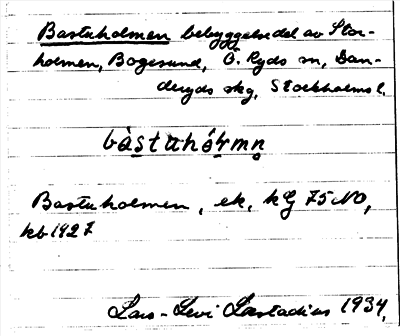 Bastuholmen bebyggelsedel av Stor-
holmen, Bogesund, Ö. Ryds sn, Dan-
deryds skg, Stockholms l.
bàstuhó̀rmn̥
Bastuholmen, ek, kG 75 NO,
kb 1927
Lars-Levi Læstadius 1934.